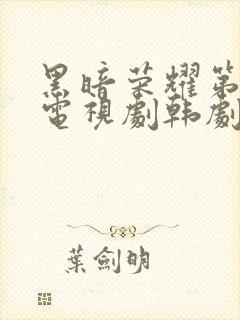 黑暗荣耀第
電視劇韩劇
葉劍明